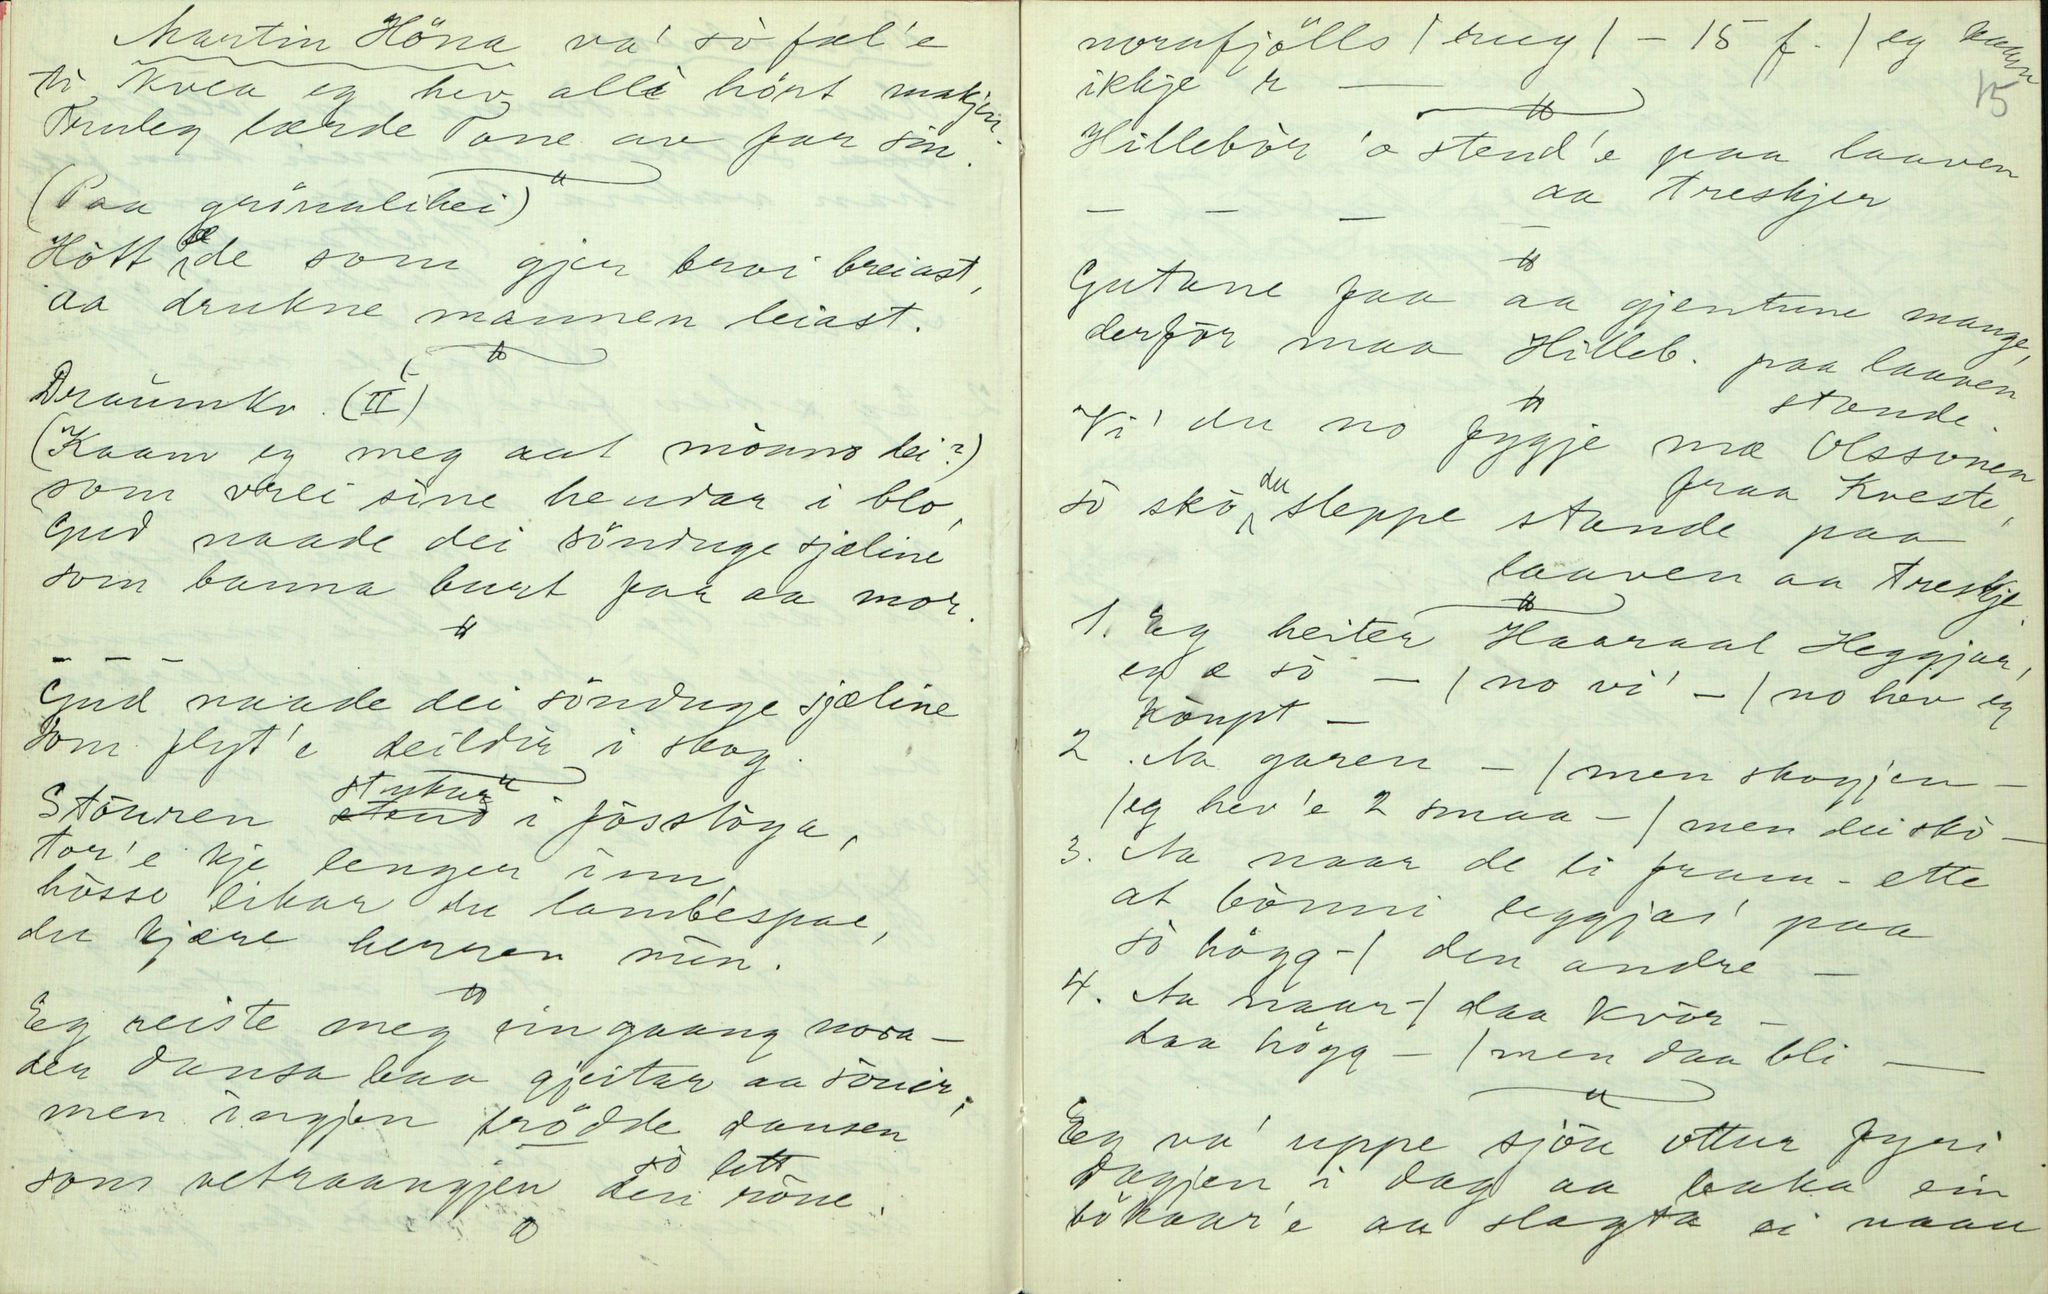 Martin Höna va' sò fæl'e
ti kvea eg hev alli hört makjen.
Truleg lærde Tone av far sin.
(Paa grönalihei)
Hött æ de som gjer brvi breiast,
aa drukne mannen leiast.
Draumkv. (II)
(Kaam eg meg aat mönno dei?)
som vrei sine hendar i blo,
Gud naade dei sönduge sjæline
som banna burt far aa mor.
- - -
Gud naade dei sönduge sjæline
som flyt'e deildir i skog.
Stöuren stukur i fösstöga,
tor'e kje lenger inn,
hòsse likar du lambespae,
du kjære herren min.
Eg reiste meg ein gaang nora -
der dansa baa gjeitar aa söuir,
men ingjen trödde dansen
som vetraangjen den sò lett röne.
nornfjölls / trug / - 15 f. / eg kaan
ikkje r —
15
Hillebör 'o stend'e paa laaven
aa treskjer
— — — —
Gutane faa aa gjentune mange,
derför maa Hilleb. paa laaven
stande.
Vi' du no fygje mæ Olssonen
fraa Kveste,
sò skò du sleppe stande paa
laaven aa treskje.
1. Eg heiter Haaraal Heggjar,
eg æ sò — / no vi' — / no hev eg
köupt —
2. Aa garen — / men skogjen —
/ eg hev'e 2 smaa — / men dei skò —
3. Aa naar de li fram - ette
at bönni leggjas' paa
sò högg - / den andre —
4. Aa naar - / daa kvör —
daa högg — / men daa bli —
Eg va' uppe sjöu ottur fyri
dagjen i dag aa baka ein
bòkaar'e aa slagta ei naau